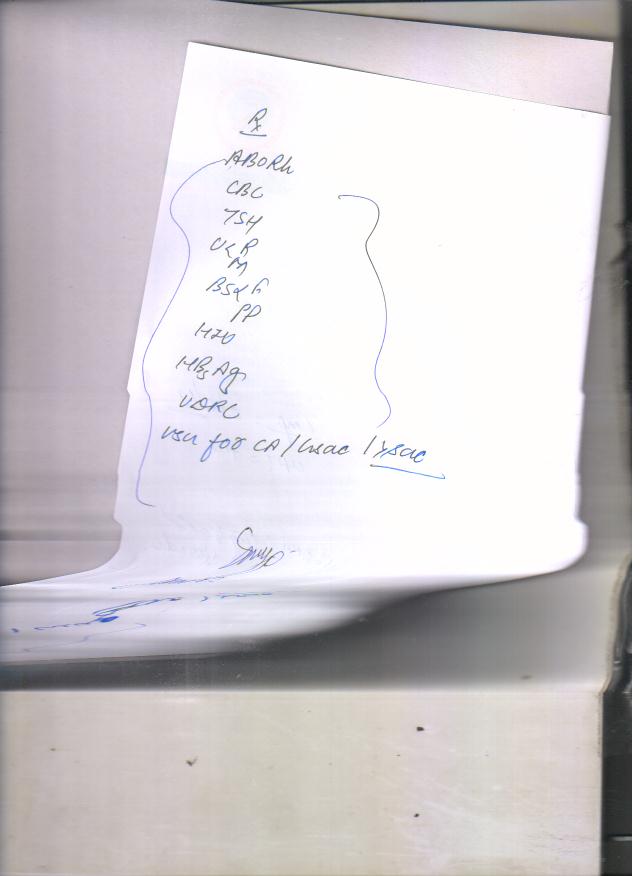 Rx
ABORh
CBC
TSH
U<R
M
BS<F
PP
HIV
HBsAg
VDRL
USG for CA / Gsac / Ysac